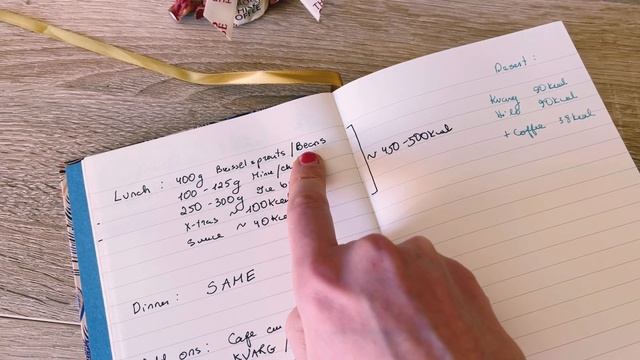 Lunch : 400g Brussel sprouts / Beans
100 - 125g Mine/ch
250 - 300g
X-tras ~ 100kcal
Sauce ~ 40kc
~ 450-500kcal
Dinner : SAME
ons : Cafe
KVARG /
Desert :
Kvarg 90kcal
90kcal
+ Coffee 38kcal
COFFEE